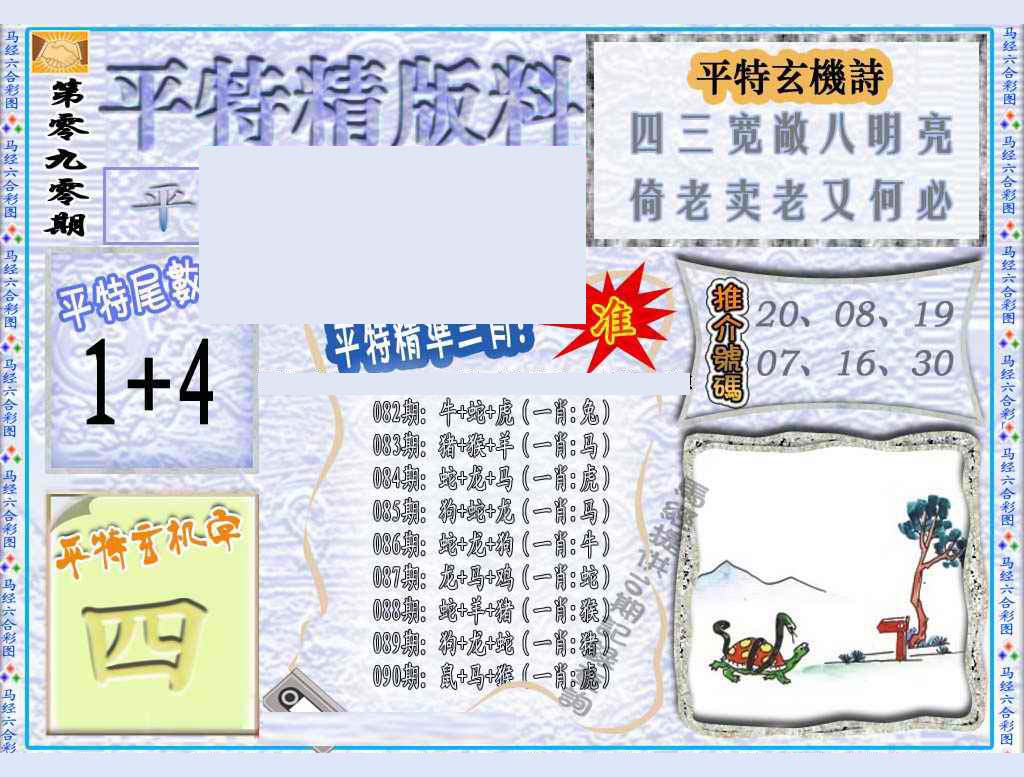 第零九零期
平特精版料
平
平特玄機詩
四三宽敞八明亮
倚老卖老又何必
平特尾數
1+4
平特精準三肖!
准
推介號碼
20、08、19
07、16、30
082期: 牛+蛇+虎(一肖:兔)
083期: 猪+猴+羊(一肖:马)
084期: 蛇+龙+马(一肖:虎)
085期: 狗+蛇+龙(一肖:马)
086期: 蛇+龙+狗(一肖:牛)
087期: 龙+马+鸡(一肖:蛇)
088期: 蛇+羊+猪(一肖:猴)
089期: 狗+龙+蛇(一肖:猪)
090期: 鼠+马+猴(一肖:虎)
平特玄机字
四
马经六合彩图
马经六合彩图
马经六合彩图
马经六合彩图
马经六合彩图
马经六合彩图
马经六合彩
马经六合彩图
马经六合彩图
马经六合彩图
马经六合彩图
马经六合彩图
马经六合彩图
马经六合彩图